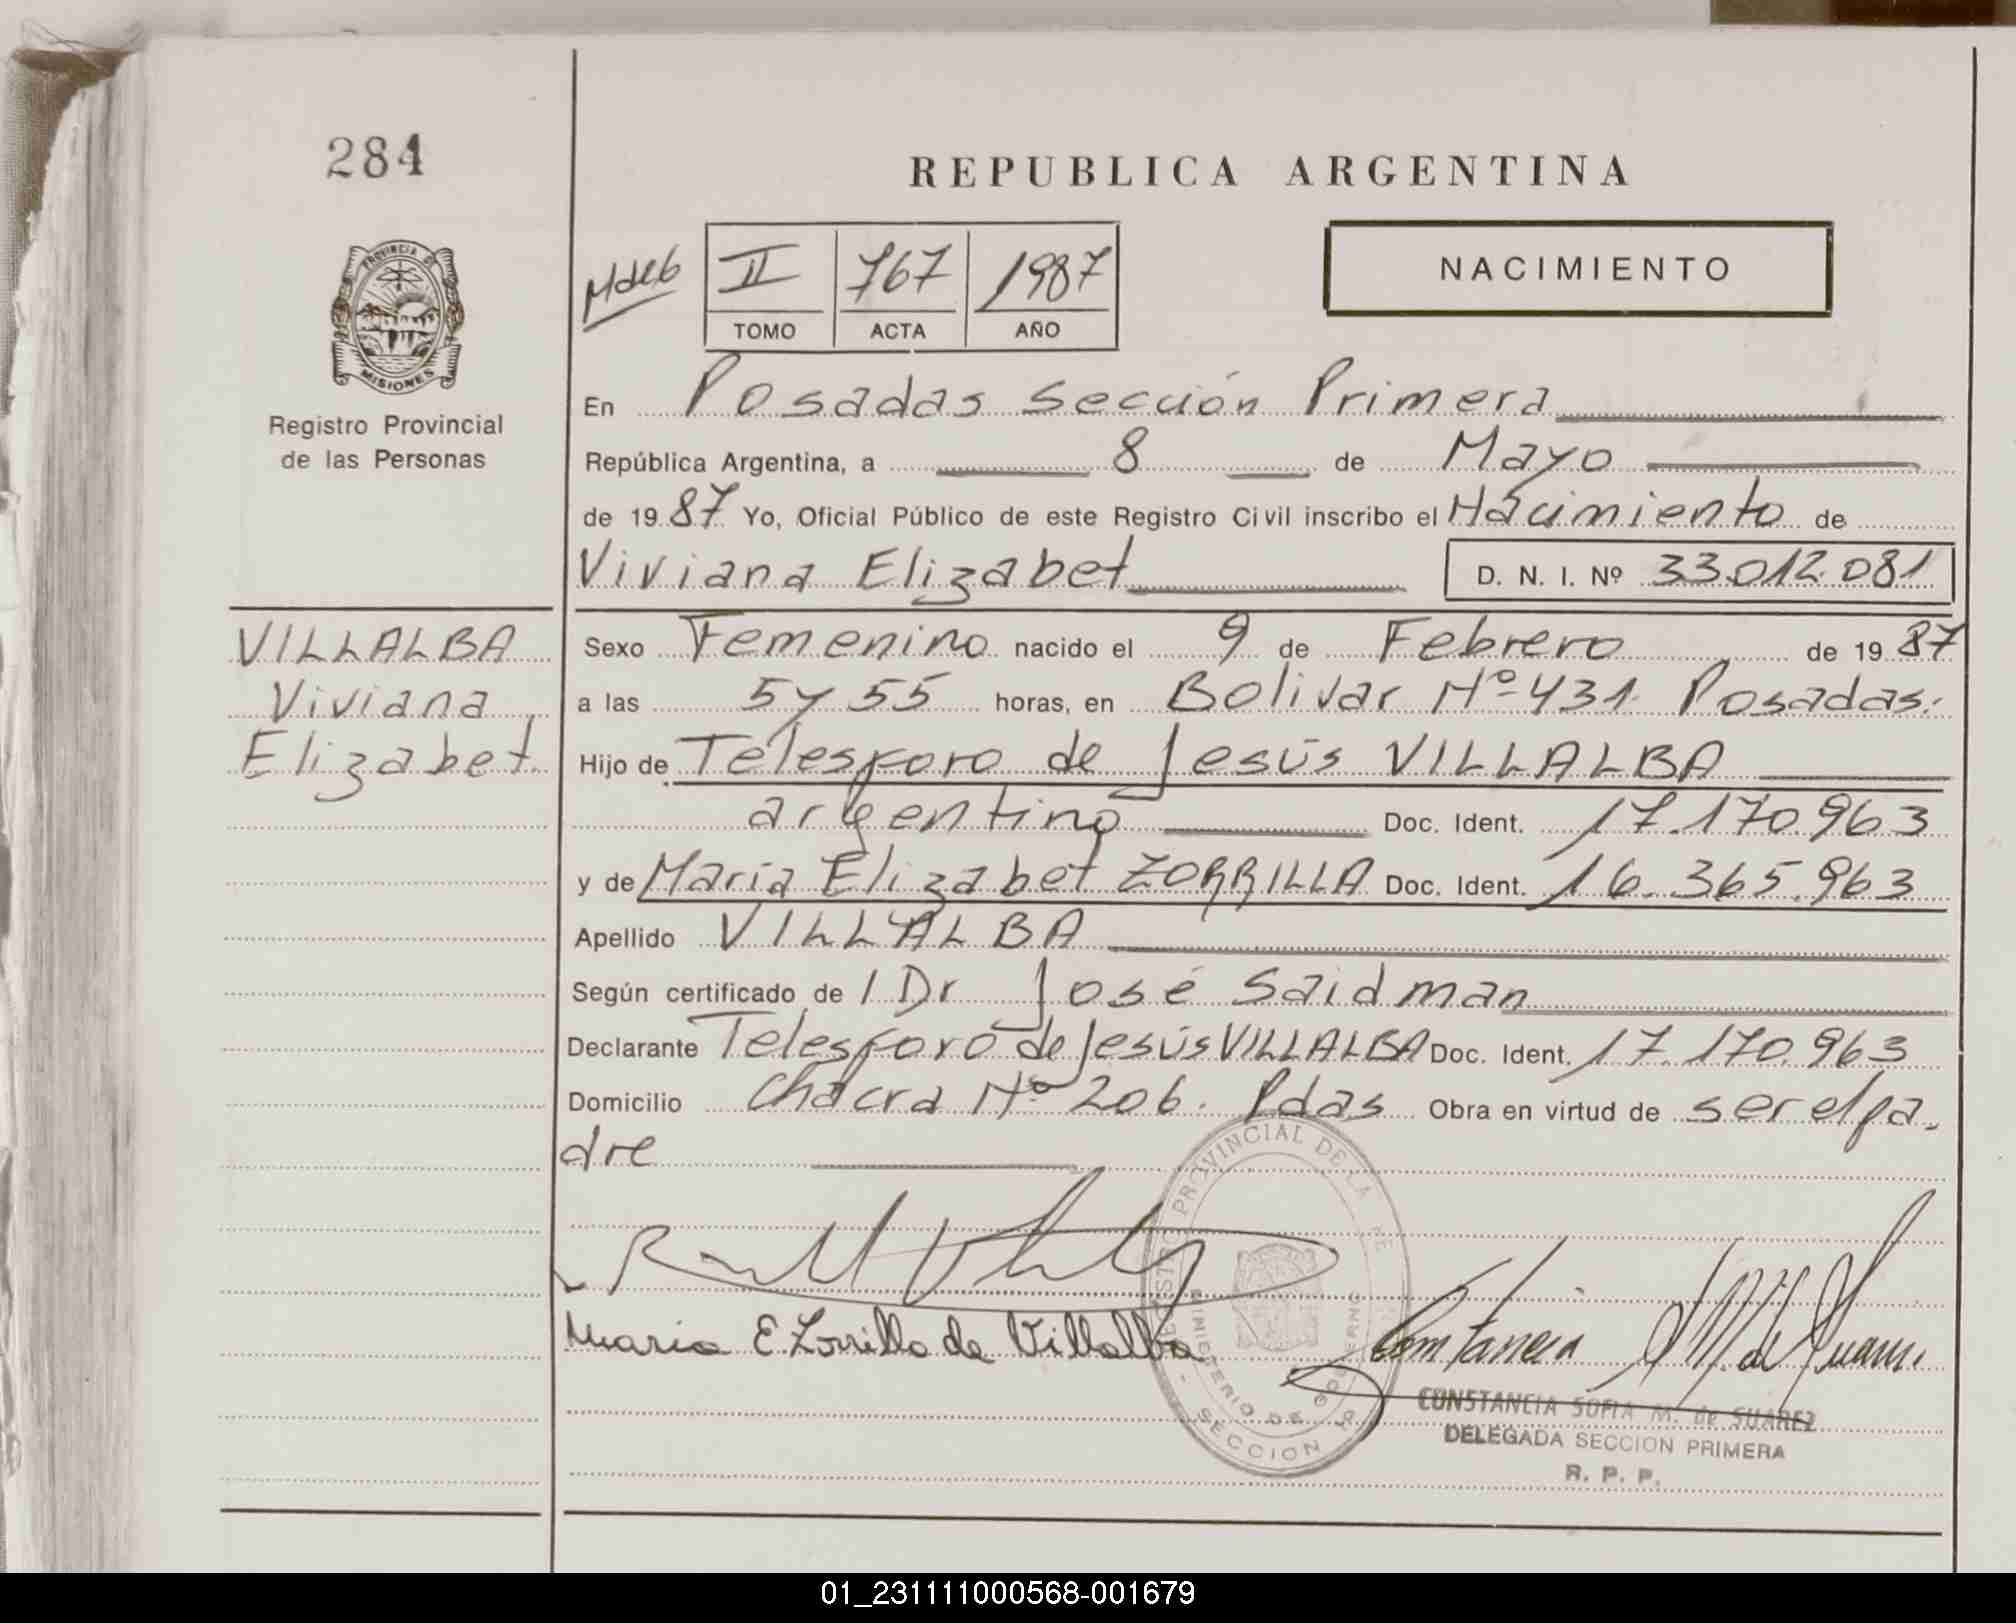 284
REPUBLICA ARGENTINA
II 767 1987
TOMO ACTA AÑO
NACIMIENTO
PROVINCIA D
MISIONES
Registro Provincial
de las Personas
En Posadas Sección Primera
República Argentina, a 8 de Mayo
de 1987 Yo, Oficial Público de este Registro Civil inscribo el Nacimiento de
Viviana Elizabet D. N. I. Nº 33.012.081
VILLALBA
Viviana
Elizabet
Sexo Femenino nacido el 9 de Febrero de 1987
a las 5 y 55 horas, en Bolivar Nº 431. Posadas.
Hijo de Telesforo de Jesús VILLALBA
argentino Doc. Ident. 17.170.963
y de María Elizabet ZORRILLA Doc. Ident. 16.365.963
Apellido VILLALBA
Según certificado de l Dr José Saidman
Declarante Telesforo de Jesús VILLALBA Doc. Ident. 17.170.963
Domicilio Chacra Nº 206. Pdas Obra en virtud de ser el pa-
dre
PROVINCIAL DE LA
MINISTERIO DE GOBIERNO
SECCION
Maria E. Zorrilla de Villalba
Constancia S M. de Suarez
CONSTANCIA SOFIA M. de SUAREZ
DELEGADA SECCION PRIMERA
R. P. P.
01_231111000568-001679